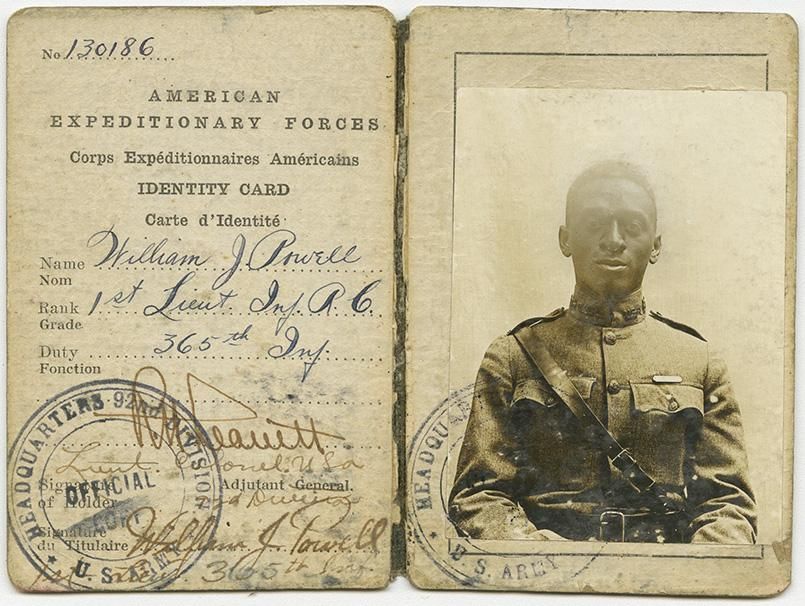 No 130186
AMERICAN
EXPEDITIONARY FORCES
Corps Expéditionnaires Américains
IDENTITY CARD
Carte d'Identité
Name William J. Powell
Nom
Rank 1st Lieut. Inf. R C.
Grade
Duty 365th Inf.
Fonction
HEADQUARTERS 92nd DIVISION
U. S. ARMY
OFFICIAL
COPY
Lieut. Colonel. USA
Signature Adjutant General.
of Holder 92nd Division
Signature
du Titulaire William J. Powell
365th Inf
HEADQUARTERS
U. S. ARMY